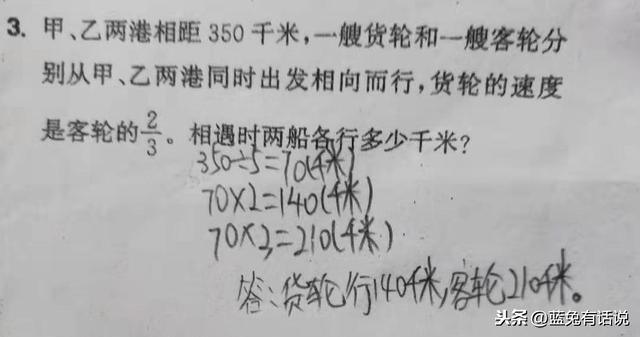 3. 甲、乙两港相距350千米,一艘货轮和一艘客轮分
别从甲、乙两港同时出发相向而行,货轮的速度
是客轮的2/3。相遇时两船各行多少千米?
350÷5=70(千米)
70×2=140(千米)
70×3=210(千米)
答:货轮行140千米,客轮210千米。
头条 @蓝兔有话说